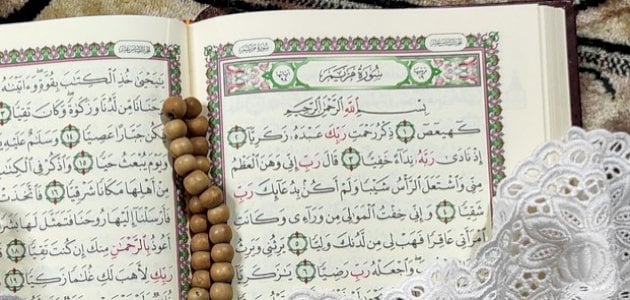 سُورَةُ مَرْيَمَ
بِسْمِ ٱللَّهِ ٱلرَّحْمَٰنِ ٱلرَّحِيمِ
كٓهيعٓصٓ ١ ذِكْرُ رَحْمَتِ رَبِّكَ عَبْدَهُۥ زَكَرِيَّآ ٢
إِذْ نَادَىٰ رَبَّهُۥ نِدَآءً خَفِيًّا ٣ قَالَ رَبِّ إِنِّي وَهَنَ ٱلْعَظْمُ
مِنِّي وَٱشْتَعَلَ ٱلرَّأْسُ شَيْبًا وَلَمْ أَكُنۢ بِدُعَآئِكَ رَبِّ
شَقِيًّا ٤ وَإِنِّي خِفْتُ ٱلْمَوَٰلِيَ مِن وَرَآءِي وَكَانَتِ
ٱمْرَأَتِي عَاقِرًا فَهَبْ لِي مِن لَّدُنكَ وَلِيًّا ٥ يَرِثُنِي وَيَرِثُ
وَٱجْعَلْهُ رَبِّ رَضِيًّا ٦ يَٰزَكَرِيَّآ
سُورَةُ مَرْيَمَ
يَٰيَحْيَىٰ خُذِ ٱلْكِتَٰبَ بِقُوَّةٍ وَءَاتَيْنَٰهُ
وَحَنَانًا مِّن لَّدُنَّا وَزَكَوٰةً وَكَانَ تَقِيًّا
يَكُن جَبَّارًا عَصِيًّا ١٤ وَسَلَٰمٌ عَلَيْهِ
وَيَوْمَ يُبْعَثُ حَيًّا ١٥ وَٱذْكُرْ فِي ٱلْكِتَٰبِ
مِنْ أَهْلِهَا مَكَانًا شَرْقِيًّا ١٦ فَٱتَّخَذَتْ
فَأَرْسَلْنَآ إِلَيْهَا رُوحَنَا فَتَمَثَّلَ لَهَا
أَعُوذُ بِٱلرَّحْمَٰنِ مِنكَ إِن كُنتَ تَقِيًّا
رَبِّكِ لِأَهَبَ لَكِ غُلَٰمًا زَكِيًّا